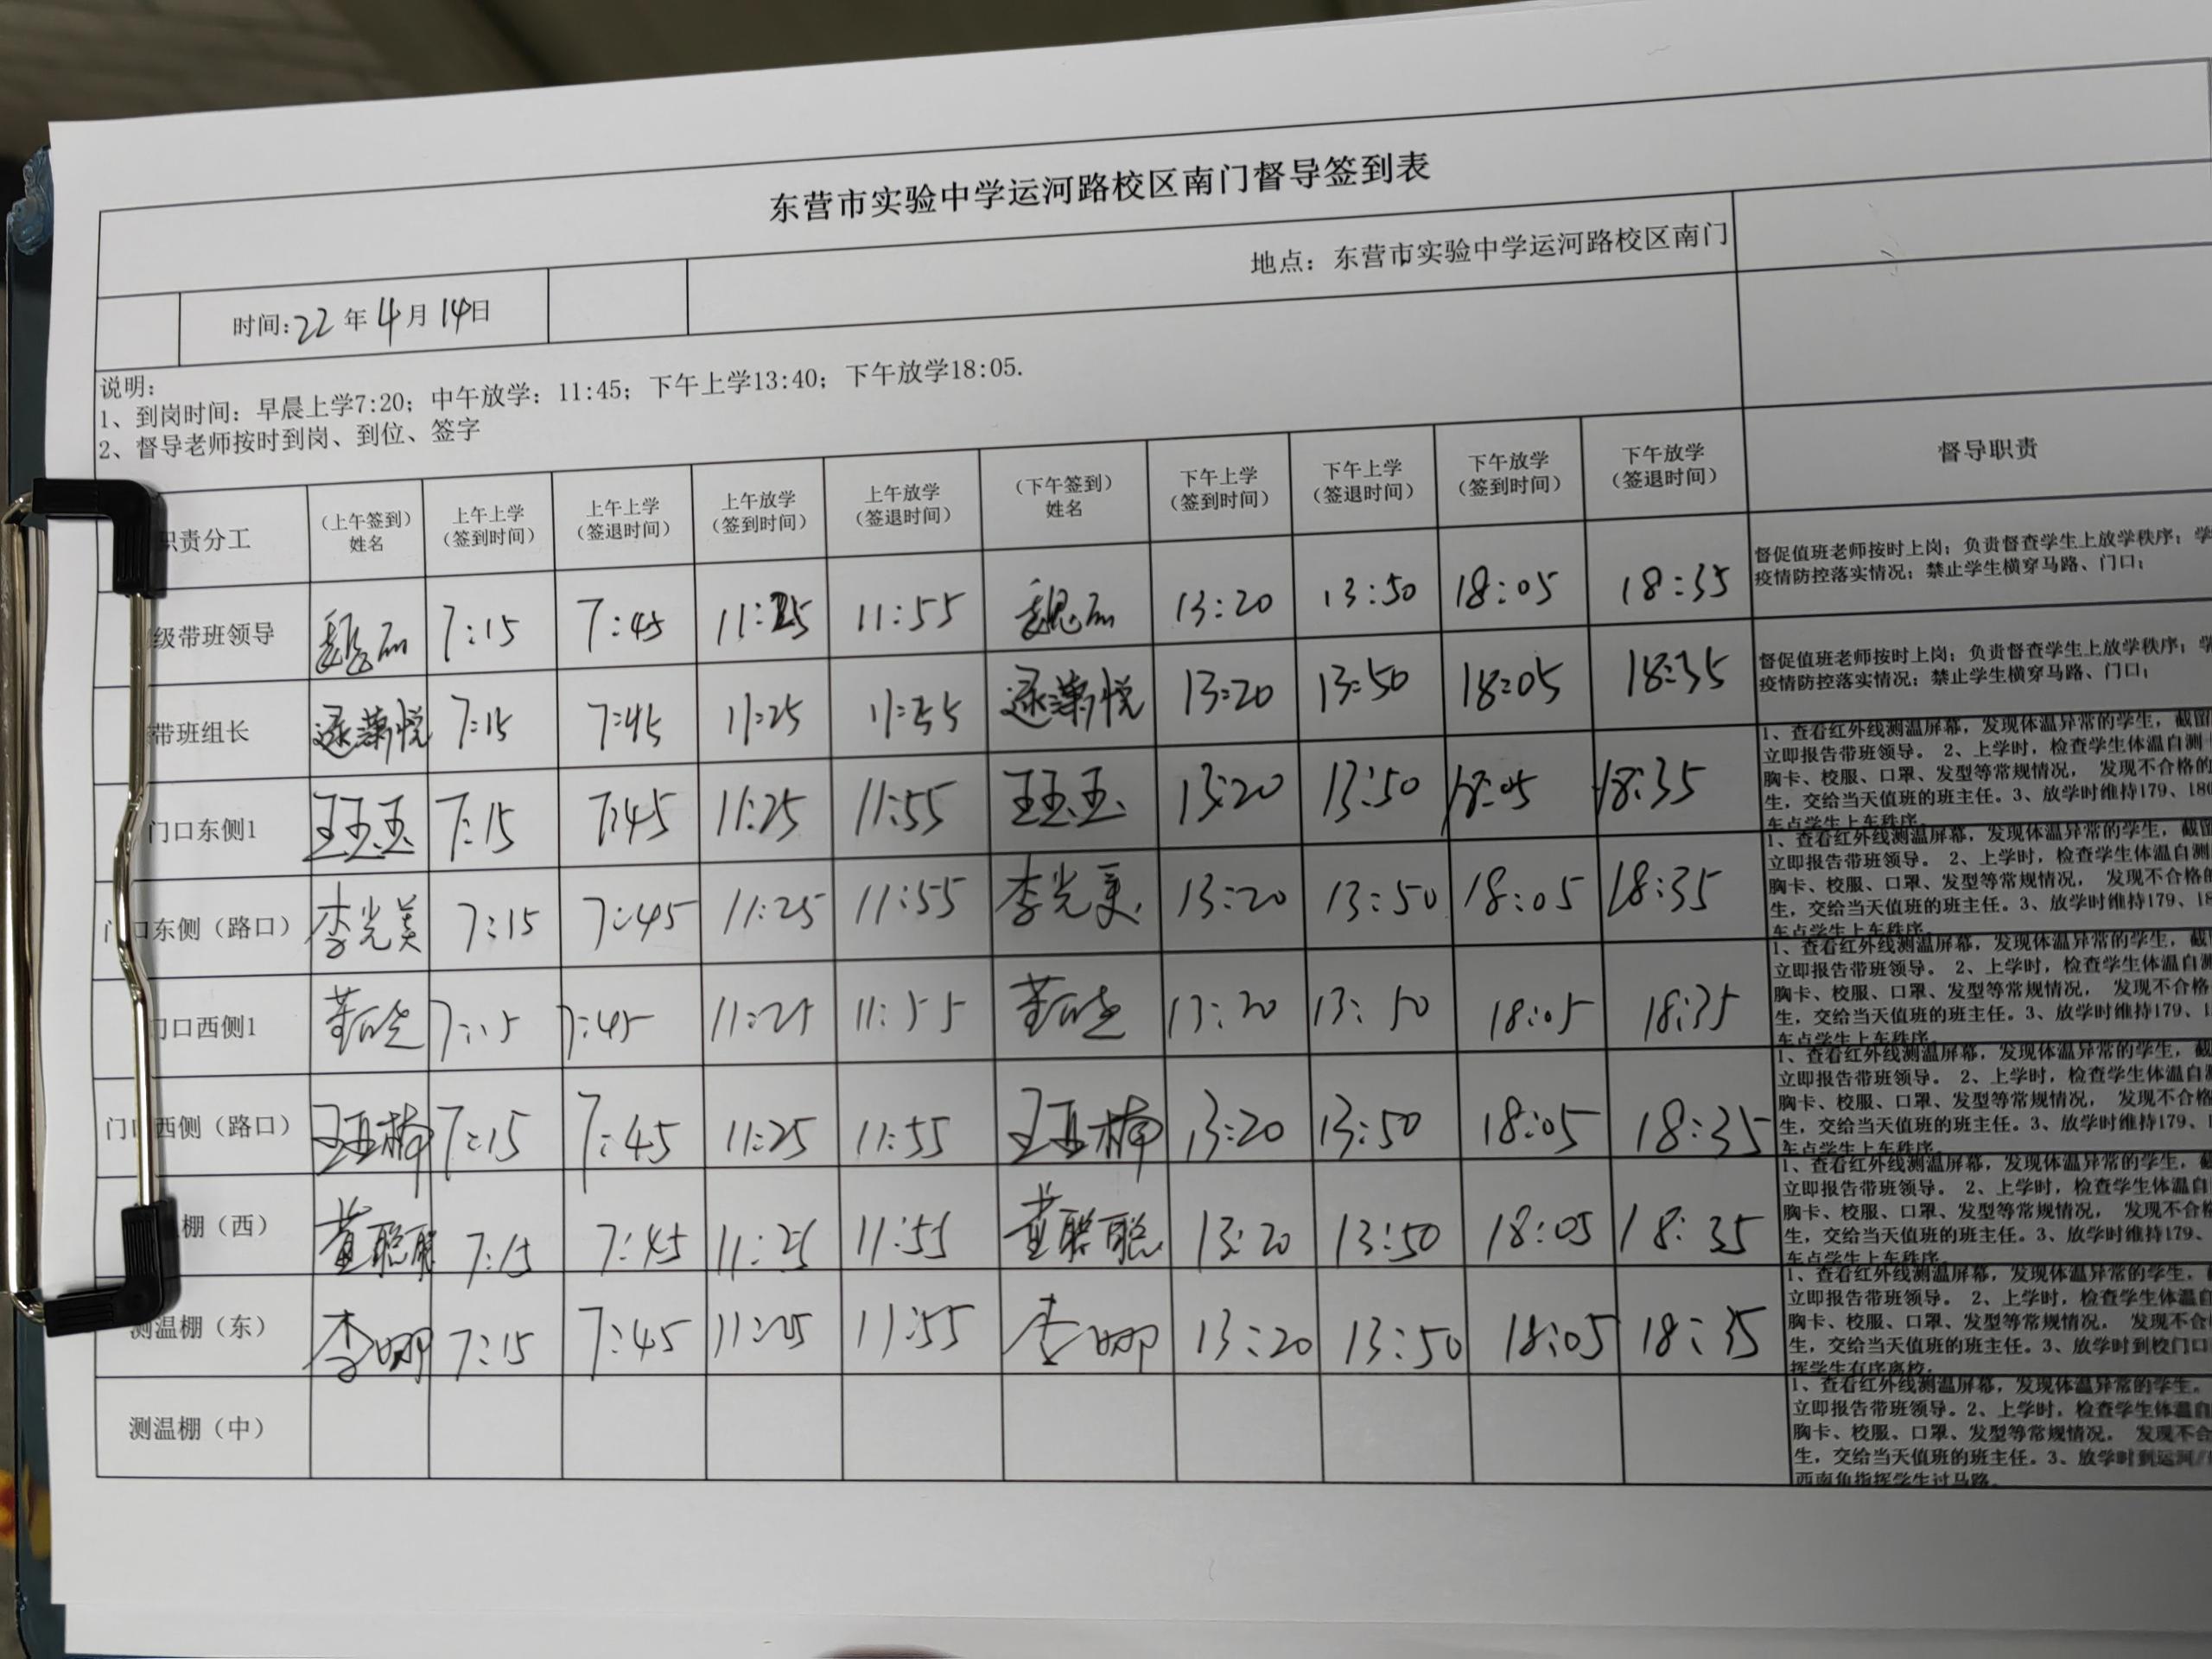 东营市实验中学运河路校区南门督导签到表
时间:22年4月14日 地点：东营市实验中学运河路校区南门
说明：
1、到岗时间：早晨上学7:20；中午放学：11:45；下午上学13:40；下午放学18:05.
2、督导老师按时到岗、到位、签字
职责分工 （上午签到）姓名 上午上学（签到时间） 上午上学（签退时间） 上午放学（签到时间） 上午放学（签退时间） （下午签到）姓名 下午上学（签到时间） 下午上学（签退时间） 下午放学（签到时间） 下午放学（签退时间） 督导职责
级带班领导 7:15 7:45 11:25 11:55 13:20 13:50 18:05 18:35 督促值班老师按时上岗；负责督查学生上放学秩序；学
疫情防控落实情况；禁止学生横穿马路、门口；
带班组长 7:15 7:45 11:25 11:55 13:20 13:50 18:05 18:35 督促值班老师按时上岗；负责督查学生上放学秩序；学
疫情防控落实情况；禁止学生横穿马路、门口；
门口东侧1 王玉玉 7:15 7:45 11:25 11:55 王玉玉 13:20 13:50 18:05 18:35 1、查看红外线测温屏幕，发现体温异常的学生，截留
立即报告带班领导。 2、上学时，检查学生体温自测
胸卡、校服、口罩、发型等常规情况， 发现不合格的
生，交给当天值班的班主任。3、放学时维持179、180
车点学生上车秩序。
门口东侧（路口） 李光美 7:15 7:45 11:25 11:55 李光美 13:20 13:50 18:05 18:35 1、查看红外线测温屏幕，发现体温异常的学生，截留
立即报告带班领导。 2、上学时，检查学生体温自测
胸卡、校服、口罩、发型等常规情况， 发现不合格的
生，交给当天值班的班主任。3、放学时维持179、18
车点学生上车秩序。
门口西侧1 7:15 7:45 11:25 11:55 13:20 13:50 18:05 18:35 1、查看红外线测温屏幕，发现体温异常的学生，截
立即报告带班领导。 2、上学时，检查学生体温自测
胸卡、校服、口罩、发型等常规情况， 发现不合格
生，交给当天值班的班主任。3、放学时维持179、1
车点学生上车秩序。
门口西侧（路口） 王玉楠 7:15 7:45 11:25 11:55 王玉楠 13:20 13:50 18:05 18:35 1、查看红外线测温屏幕，发现体温异常的学生，截
立即报告带班领导。 2、上学时，检查学生体温自测
胸卡、校服、口罩、发型等常规情况， 发现不合格
生，交给当天值班的班主任。3、放学时维持179、
车点学生上车秩序。
棚（西） 黄聪聪 7:15 7:45 11:25 11:55 黄聪聪 13:20 13:50 18:05 18:35 1、查看红外线测温屏幕，发现体温异常的学生，截
立即报告带班领导。 2、上学时，检查学生体温自
胸卡、校服、口罩、发型等常规情况， 发现不合格
生，交给当天值班的班主任。3、放学时维持179、
车点学生上车秩序。
测温棚（东） 李娜 7:15 7:45 11:25 11:55 李娜 13:20 13:50 18:05 18:35 1、查看红外线测温屏幕，发现体温异常的学生，
立即报告带班领导。 2、上学时，检查学生体温自
胸卡、校服、口罩、发型等常规情况， 发现不合
生，交给当天值班的班主任。3、放学时到校门口
挥学生有序离校。
测温棚（中） 1、查看红外线测温屏幕，发现体温异常的学生。
立即报告带班领导。2、上学时，检查学生体温自
胸卡、校服、口罩、发型等常规情况， 发现不合
生，交给当天值班的班主任。3、放学时到运河
西南角指挥学生过马路。